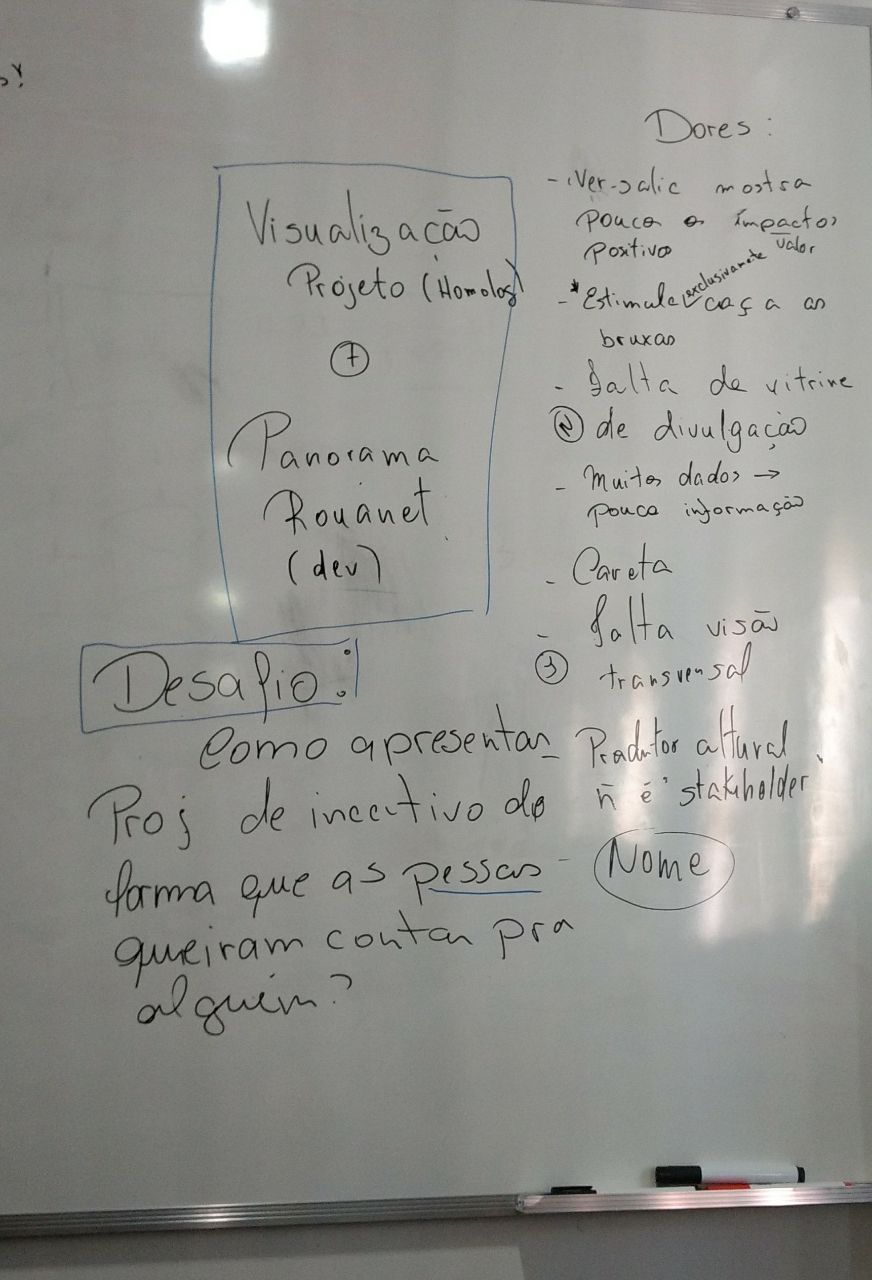 Visualização
Projeto (Homolog)
+
Panorama
Rouanet
(dev)
Desafio:
Como apresentar
Proj de incentivo de
forma que as pessoas
queiram contar pra
alguém?
Dores:
- Ver-salic mostra
pouco os impactos
positivo valor
- *Estimula exclusivamete caça as
bruxas
- falta de vitrine
de divulgação
- Muitos dados →
pouca informação
- Careta
- falta visão
3 transversal
Produtor cultural
ñ é "stakeholder"
- Nome